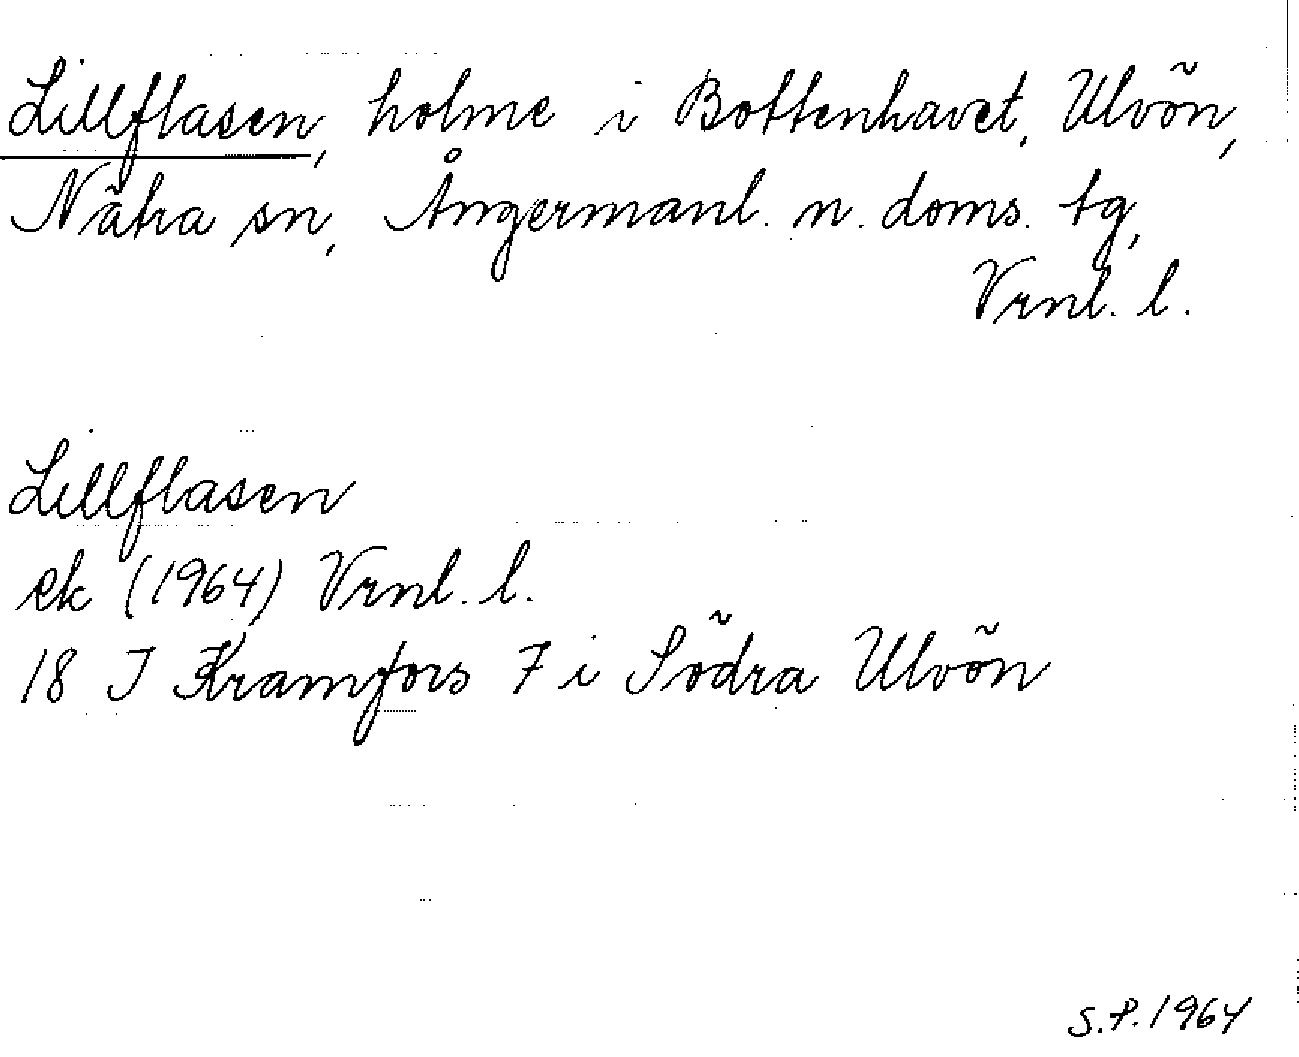 Lillflasen, holme i Bottenhavet, Ulvön,
Nätra sn, Ångermanl. n. doms. tg,
Vrnl. l.
Lillflasen
ek (1964) Vrnl. l.
18 J Kramfors 7 i Södra Ulvön
S.P. 1964